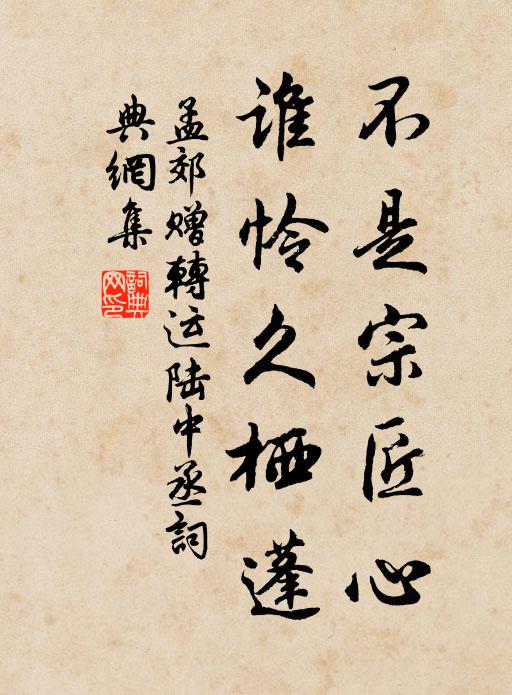 不是宗匠心
谁怜久栖蓬
孟郊赠轉运陆中丞詞
典網集
詞典网印